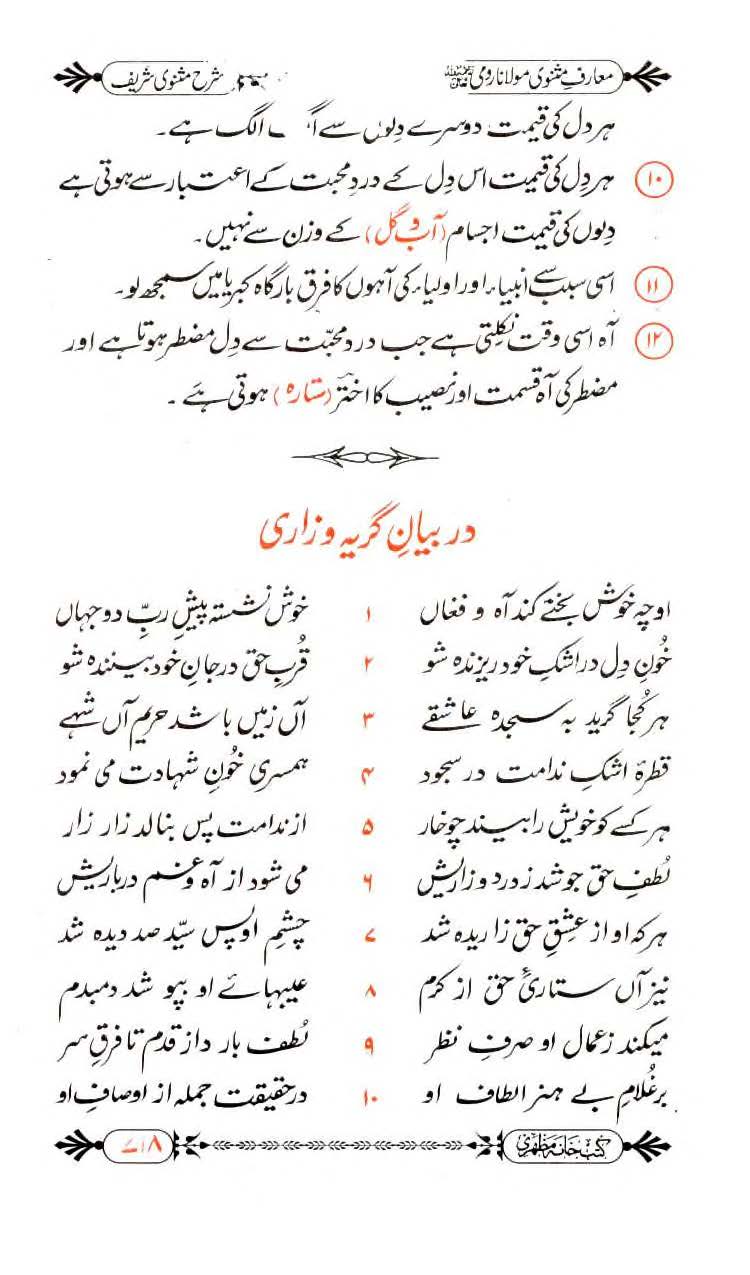 معارفِ مثنوی مولانا رومی شرح مثنوی شریف
ہر دل کی قیمت دوسرے دِلوں سے الگ ہے۔
۱۰ ہر دِل کی قیمت اس دِل کے دردِ محبت کے اعتبار سے ہوتی ہے
دلوں کی قیمت اجسام (آب و گل) کے وزن سے نہیں۔
۱۱ اسی سبب سے انبیاء اور اولیاء کی آہوں کا فرق بارگاہ کبریا میں سمجھ لو۔
۱۲ آہ اسی وقت نکلتی ہے جب دردِ محبّت سے دِل مضطر ہوتا ہے اور
مضطر کی آہ قسمت اور نصیب کا اختر (ستارہ) ہوتی ہے۔
در بیانِ گریہ و زاری
او چہ خوش بختے کند آہ و فغاں ۱ خوش نشستہ پیشِ ربِّ دو جہاں
خُونِ دِل در اشکِ خود ریزندہ شو ۲ قُربِ حق در جانِ خود بینندہ شو
ہر کُجا گرید بہ سجدہ عاشقے ۳ آں زمیں باشد حریم آں شہے
قطرۂ اشکِ ندامت در سجود ۴ ہمسری خُونِ شہادت می نمود
ہر کسے کو خویش را بیند چو خار ۵ از ندامت پس بنالد زار زار
لُطفِ حق جوشد ز درد و زاریش ۶ می شود از آہ و غم دریاریش
ہر کہ او از عِشقِ حق زاریدہ شد ۷ چشمِ او پس سیّد صد دیدہ شد
نیز آں ستاریٔ حق از کرم ۸ عیبہائے او بپوشد دمبدم
میکند زعمال او صرفِ نظر ۹ لُطف بارد از قدم تا فرقِ سر
بر غُلامِ بے ہنر الطاف او ۱۰ در حقیقت جملہ از اوصافِ او
کتب خانہ مظہری ۷۱۸